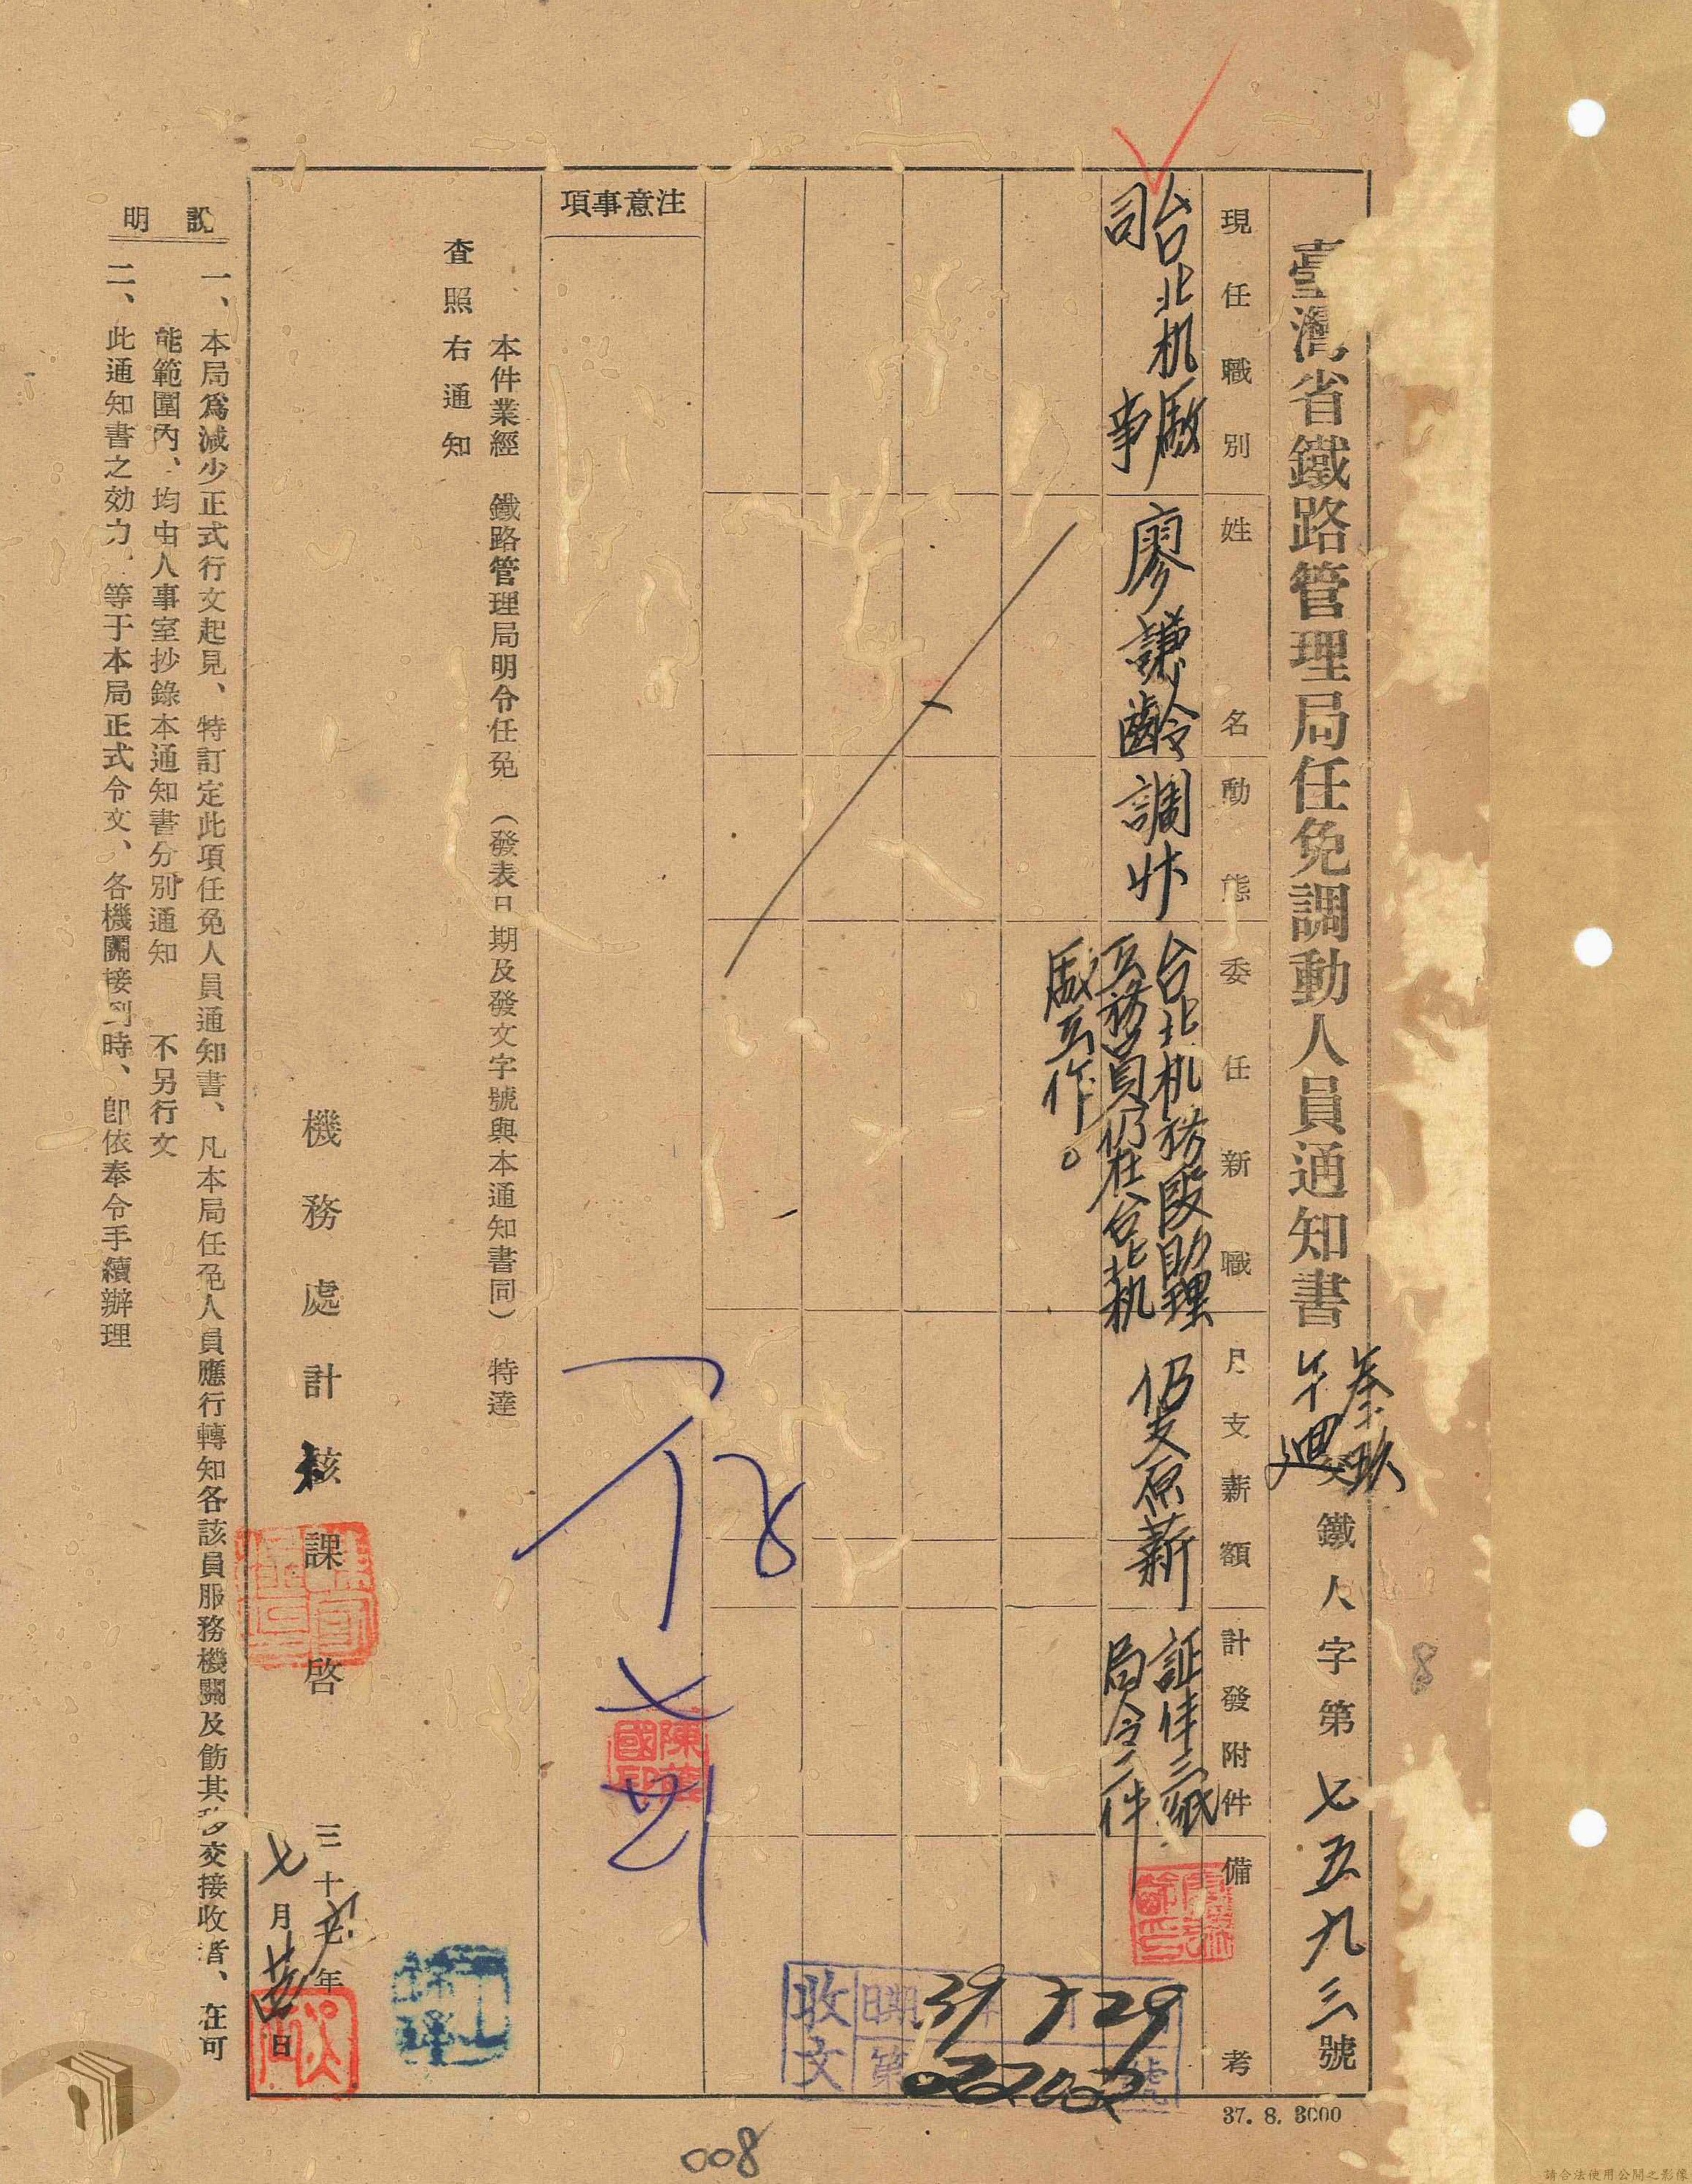 臺灣省鐵路管理局任免調動人員通知書
叁玖午迴鐵人字第七五九三號
現任職別
姓名
動態
委任新職
月支薪額
計發附件
備考
台北机廠
司事
廖謙齡
調升
台北机務段助理
工務員仍在台北机
廠工作。
仍支原薪
証件三紙
局令二件
注意事項
本件業經 鐵路管理局明令任免 （發表日期及發文字號與本通知書同） 特達
查照右通知
機務處計核課啓
三十九年
七月 日
說明
一、本局爲減少正式行文起見、特訂定此項任免人員通知書、凡本局任免人員應行轉知各該員服務機關及飭其移交接收者、在可
能範圍內、均由人事室抄錄本通知書分別通知 不另行文
二、此通知書之効力、等于本局正式令文、各機關接到時、卽依奉令手續辦理
陳 國印
收文
日期 39 7 29
第 02202 號
37. 8. 3000
8
008
請合法使用公開之影像